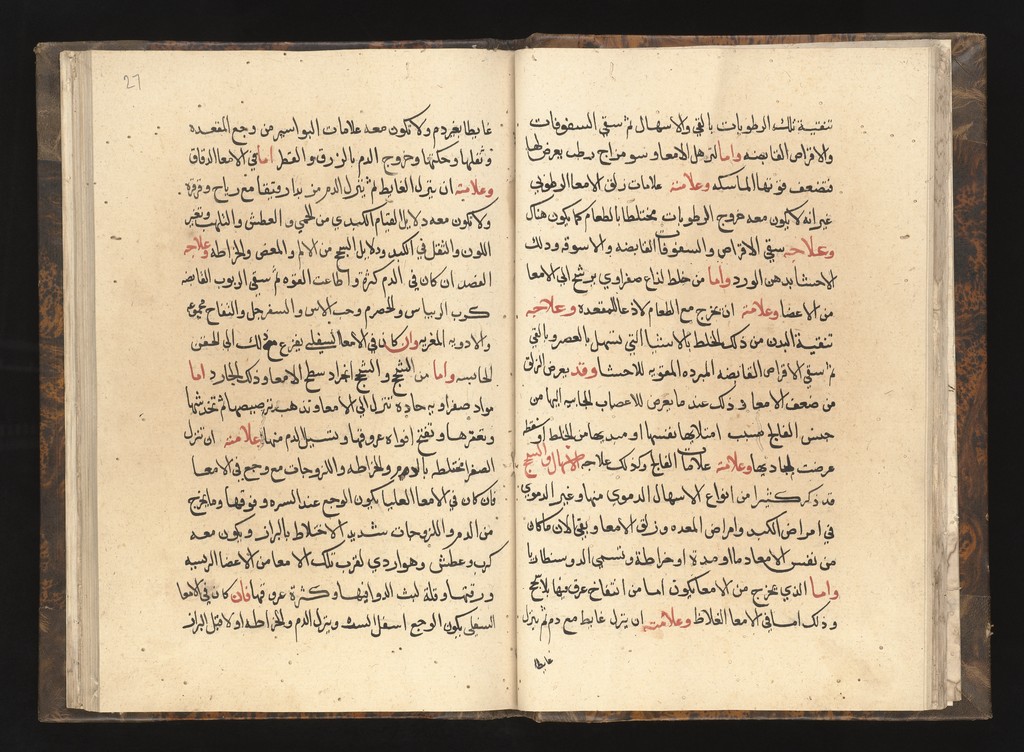 تنقية تلك الرطوبات بالقي والاسهال ثم سقي السفوفات
والاقراص القابضه واما لترهل الامعا وسو مزاج رطب يعرض لها
فتضعف قوتها الماسكه وعلامته علامات زلق الامعا الرطوبي
غير انه لا يكون معه خروج الرطوبات مختلطا بالطعام كما يكون هناك
وعلاجه سقي الاقراص والسفوفات القابضه والاسوقه ودلك
الاحشا بدهن الورد واما من خلط لذاع صفراوي يرشح الى الامعا
من الاعضا وعلامته ان يخرج مع الطعام لاذعا للمقعده وعلاجه
تنقية البدن من ذلك الخلط بالاشيا التي تسهل بالعصر وبالقي
ثم سقي الاقراص القابضه المبرده المقويه للاحشا وقد يعرض الزلق
من ضعف الامعا وذلك عند ما يعرض للاعصاب الجاييه اليها من
جنس الفالج بسبب امتلايها نفسها او مبديها من الخلط او سقطه
عرضت لمجاديها وعلامته علامات الفالج وكذلك علاجه الاسهال والسحج
قد ذكر كثير من انواع الاسهال الدموي منها وغير الدموي
في امراض الكبد وامراض المعده وزلق الامعا وبقي الان ما كان
من نفس الامعا دما او مدة او خراطة وتسمى الدوسنطاريا
واما الذي يخرج من الامعا يكون اما من انتفاخ عرق فيها بلا سحج
وذلك اما في الامعا الغلاظ وعلامته ان ينزل غايط مع دم ثم ينزل
غايطا
27
غايطا بغير دم ولا يكون معه علامات البواسير من وجع المقعده
وثقلها وحكتها وخروج الدم بالزرق والقطر اما في الامعا الدقاق
وعلامته ان ينزل الغايط ثم ينزل الدم من بدا رقيقا مع رياح وقرقرة
ولا يكون معه دلايل القيام الكبدي من الحمى والعطش والتلهب وتغير
اللون والثقل في الكبد ودلايل السحج من الالم والمغص والخراطه وعلاجه
الفصد ان كان في الدم كثرة واطاعت القوه ثم سقي الربوب القابضه
كرب الريباس والحصرم وحب الاس والسفرجل والتفاح مجموع
والادويه المغريه وان كان في الامعا السفلي يفزع مع ذلك الى الحقن
الحابسه واما من السحج والسحج انجراد سطح الامعا وذلك الجارد اما
مواد صفراويه حادة تنزل الى الامعا وتذهب ترصيصها ثم تخدشها
وتعقرها وتفتح افواه عروقها وتسيل الدم منها وعلامته ان تنزل
الصفرا مختلطه بالدم والخراطه واللزوجات مع وجع في الامعا
فان كان في الامعا العليا يكون الوجع عند السره وفوقها وما يخرج
من الدم واللزوجات شديد الاختلاط بالبراز ويكون معه
كرب وعطش وهو اردي لقرب تلك الامعا من الاعضا الرييسه
ورقتها وقلة لبث الدوا فيها وكثرة عروقها فان كان في الامعا
السفلى يكون الوجع اسفل السره وينزل الدم والخراطه اولا قبل البراز